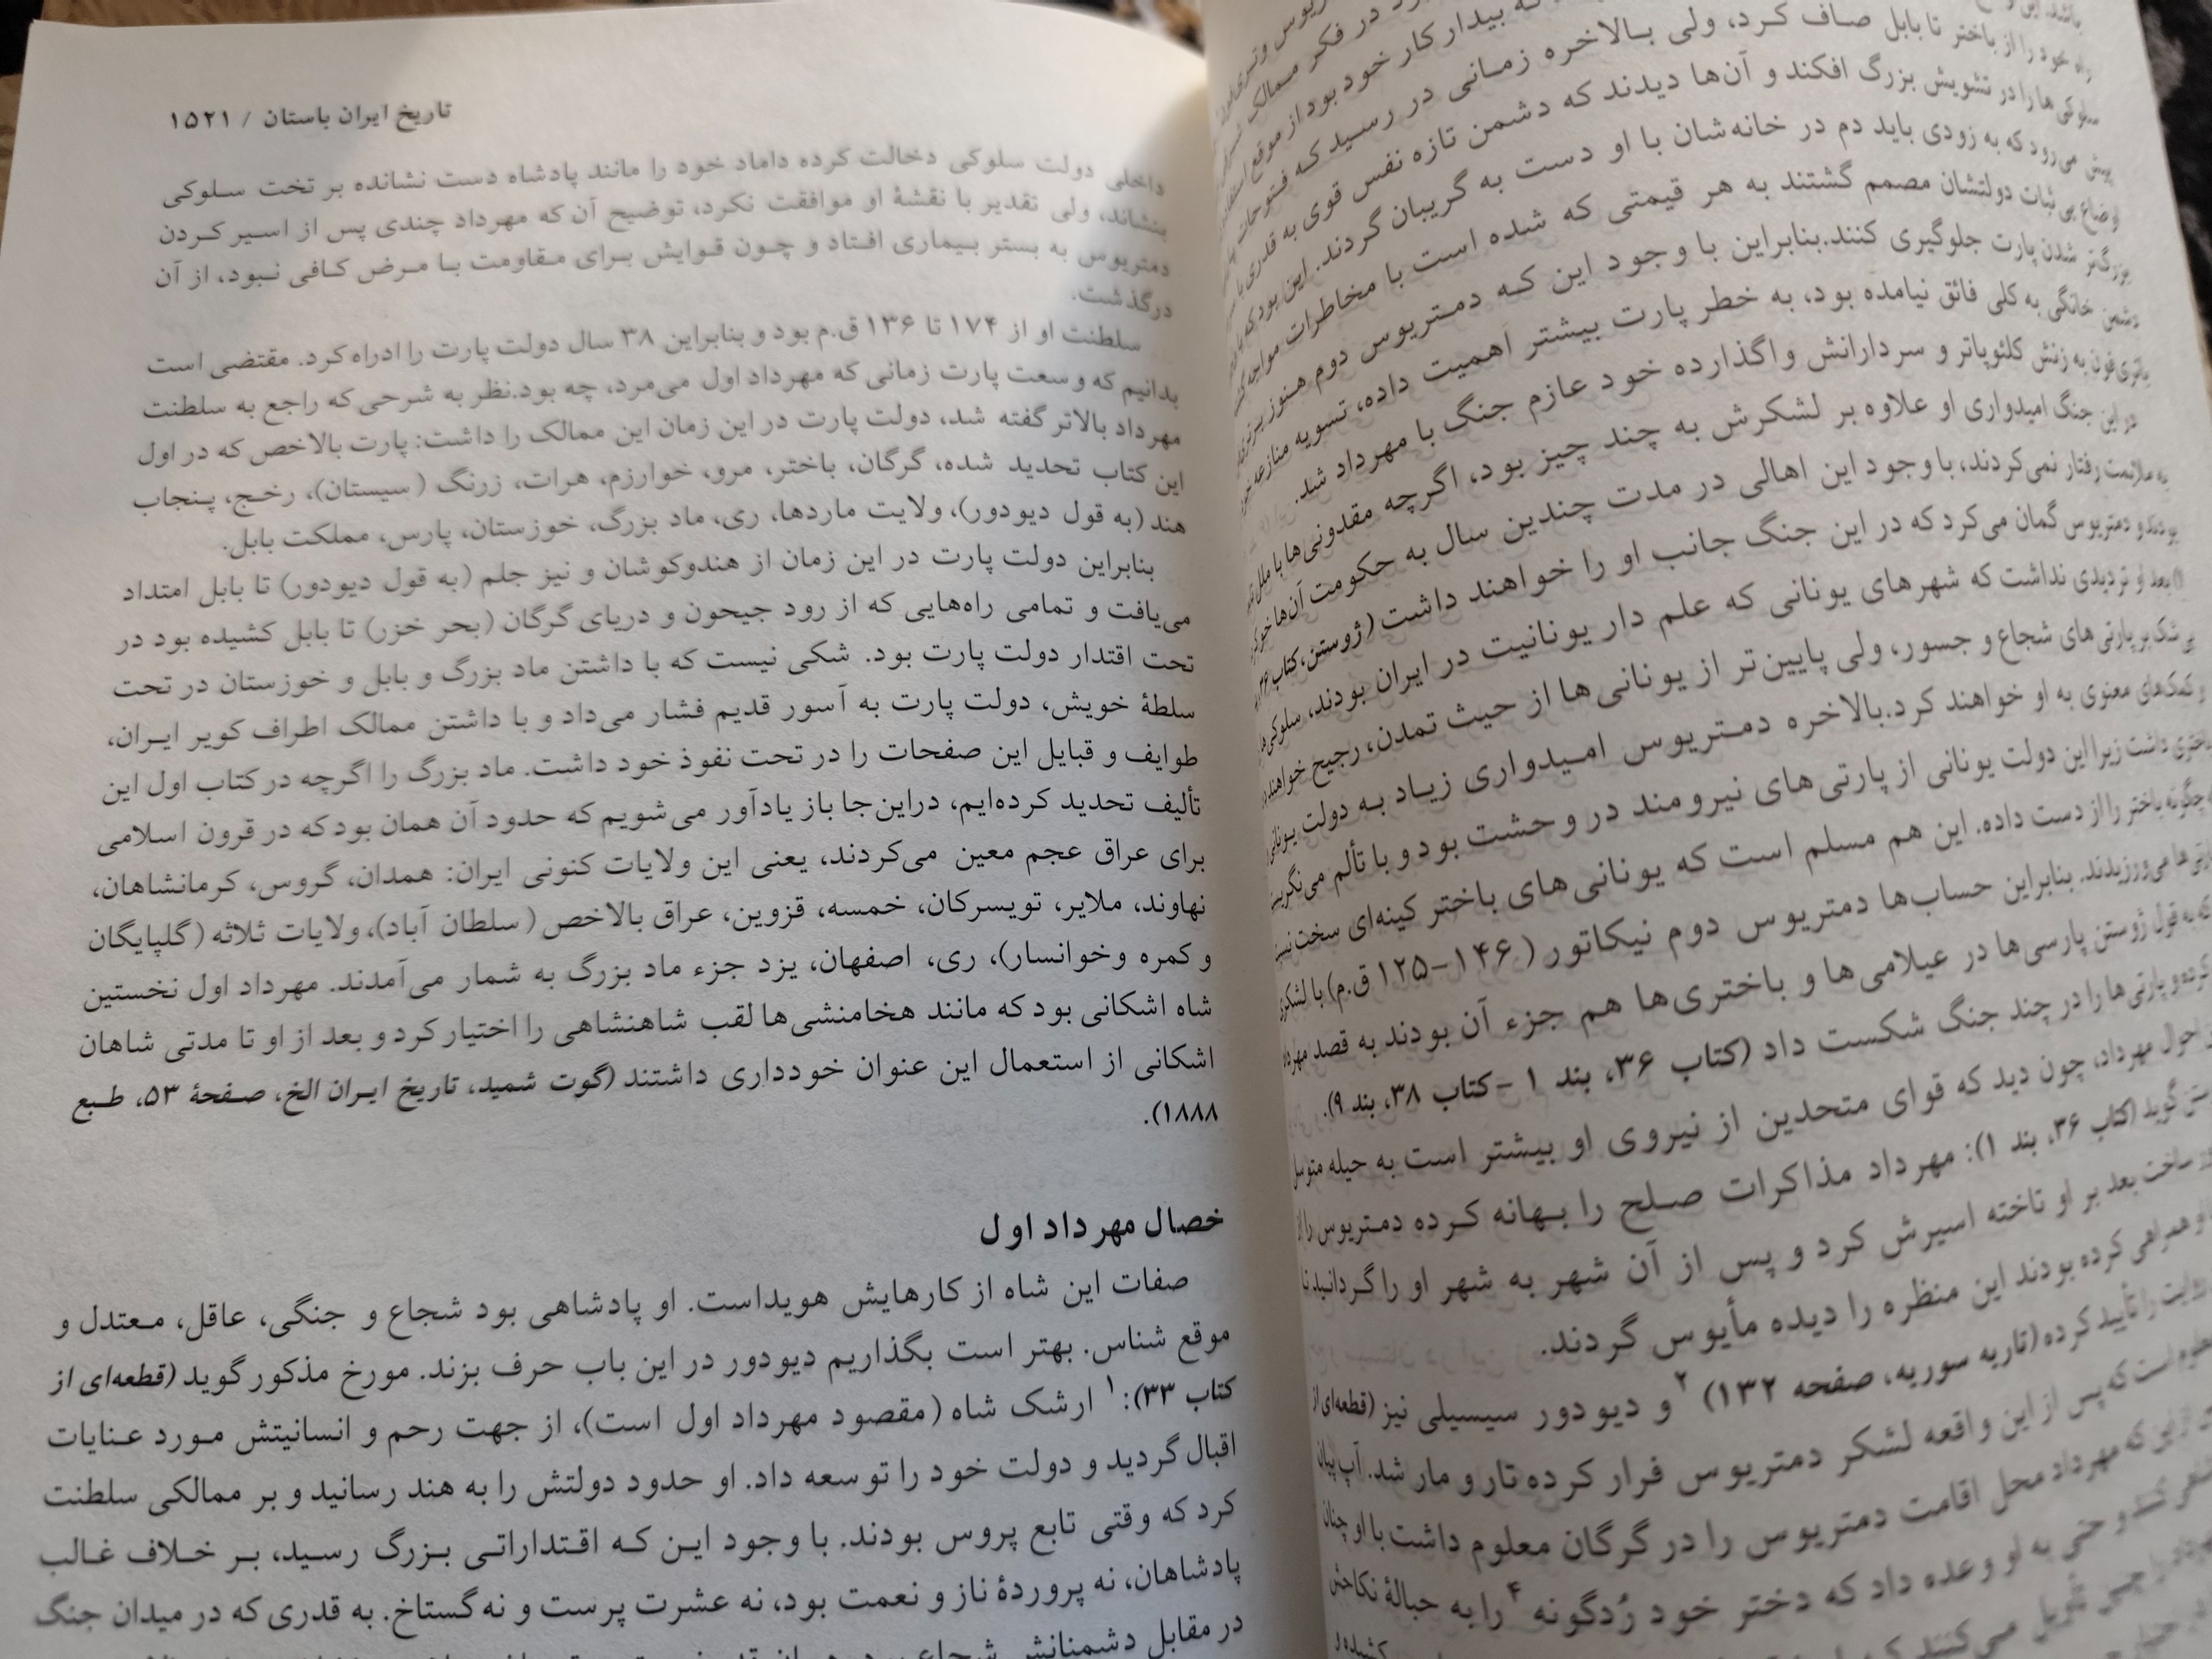 در فکر ممالک
که بیدار کار خود بود از موقع استفاده
راه خود را از باختر تا بابل صاف کرد، ولی بالاخره زمانی در رسید که فتوحات
سلوکی‌ها را در تشویش بزرگ افکند و آن‌ها دیدند که دشمن تازه نفس قوی به قدری با
پیش می‌رود که به زودی باید دم در خانه‌شان با او دست به گریبان گردند. این بود که با
اوضاع بی ثبات دولتشان مصمم گشتند به هر قیمتی که شده است با مخاطرات مواجه
بزرگ‌تر شدن پارت جلوگیری کنند.بنابراین با وجود این که دمتریوس دوم هنوز بر
دشمن خانگی به کلی فائق نیامده بود، به خطر پارت بیشتر اهمیت داده، تسویه منازعه
تری‌فون به زنش کلئوپاتر و سردارانش واگذارده خود عازم جنگ با مهرداد شد.
در این جنگ امیدواری او علاوه بر لشکرش به چند چیز بود، اگرچه مقدونی‌ها با ملل
به ملائمت رفتار نمی‌کردند، با وجود این اهالی در مدت چندین سال به حکومت آن‌ها خو
بودند و دمتریوس گمان می‌کرد که در این جنگ جانب او را خواهند داشت (ژوستن، کتاب ۳۶،
بعد او تردیدی نداشت که شهرهای یونانی که علم دار یونانیت در ایران بودند، سلوکی‌ها
بی شک بر پارتی های شجاع و جسور، ولی پایین‌تر از یونانی‌ها از حیث تمدن، رجیح خواهند
و کمک‌های معنوی به او خواهند کرد.بالاخره دمتریوس امیدواری زیاد به دولت یونانی
باختری داشت زیرا این دولت یونانی از پارتی‌های نیرومند در وحشت بود و با تألم می‌نگریست
چگونه باختر را از دست داده. این هم مسلم است که یونانی‌های باختر کینه‌ای سخت نسبت
پارتی‌ها می‌ورزیدند. بنابراین حساب‌ها دمتریوس دوم نیکاتور (۱۴۶-۱۲۵ ق.م) با لشکری
به قول ژوستن پارسی‌ها در عیلامی‌ها و باختری‌ها هم جزء آن بودند به قصد مهرداد
کرده و پارتی‌ها را در چند جنگ شکست داد (کتاب ۳۶، بند ۱ -کتاب ۳۸، بند ۹).
احوال مهرداد، چون دید که قوای متحدین از نیروی او بیشتر است به حیله متوسل
گوید (کتاب ۳۶، بند ۱): مهرداد مذاکرات صلح را بهانه کرده دمتریوس را از
ساخت بعد بر او تاخته اسیرش کرد و پس از آن شهر به شهر او را گردانید تا
همراهی کرده بودند این منظره را دیده مأیوس گردند.
روایت را تأیید کرده (تاریه سوریه، صفحه ۱۳۲) ۲ و دیودور سیسیلی نیز (قطعه‌ای از
معلوم است که پس از این واقعه لشکر دمتریوس فرار کرده تار و مار شد. آپ‌پیان
که مهرداد محل اقامت دمتریوس را در گرگان معلوم داشت با او چنان
و حتی به او وعده داد که دختر خود رُدگونه ۴ را به حبالهٔ نکاحش
می‌کنند که
تاریخ ایران باستان / ۱۵۲۱
داخلی دولت سلوکی دخالت کرده داماد خود را مانند پادشاه دست نشانده بر تخت سلوکی
بنشاند، ولی تقدیر با نقشهٔ او موافقت نکرد، توضیح آن‌که مهرداد چندی پس از اسیر کردن
دمتریوس به بستر بیماری افتاد و چون قوایش برای مقاومت با مرض کافی نبود، از آن
درگذشت.
سلطنت او از ۱۷۴ تا ۱۳۶ ق.م بود و بنابراین ۳۸ سال دولت پارت را ادراه کرد. مقتضی است
بدانیم که وسعت پارت زمانی که مهرداد اول می‌مرد، چه بود.نظر به شرحی که راجع به سلطنت
مهرداد بالاتر گفته شد، دولت پارت در این زمان این ممالک را داشت: پارت بالاخص که در اول
این کتاب تحدید شده، گرگان، باختر، مرو، خوارزم، هرات، زرنگ (سیستان)، رخج، پنجاب
هند (به قول دیودور)، ولایت ماردها، ری، ماد بزرگ، خوزستان، پارس، مملکت بابل.
بنابراین دولت پارت در این زمان از هندوکوشان و نیز جلم (به قول دیودور) تا بابل امتداد
می‌یافت و تمامی راه‌هایی که از رود جیحون و دریای گرگان (بحر خزر) تا بابل کشیده بود در
تحت اقتدار دولت پارت بود. شکی نیست که با داشتن ماد بزرگ و بابل و خوزستان در تحت
سلطهٔ خویش، دولت پارت به آسور قدیم فشار می‌داد و با داشتن ممالک اطراف کویر ایران،
طوایف و قبایل این صفحات را در تحت نفوذ خود داشت. ماد بزرگ را اگرچه در کتاب اول این
تألیف تحدید کرده‌ایم، دراین‌جا باز یادآور می‌شویم که حدود آن همان بود که در قرون اسلامی
برای عراق عجم معین می‌کردند، یعنی این ولایات کنونی ایران: همدان، گروس، کرمانشاهان،
نهاوند، ملایر، تویسرکان، خمسه، قزوین، عراق بالاخص (سلطان آباد)، ولایات ثلاثه (گلپایگان
و کمره وخوانسار)، ری، اصفهان، یزد جزء ماد بزرگ به شمار می‌آمدند. مهرداد اول نخستین
شاه اشکانی بود که مانند هخامنشی‌ها لقب شاهنشاهی را اختیار کرد و بعد از او تا مدتی شاهان
اشکانی از استعمال این عنوان خودداری داشتند (گوت شمید، تاریخ ایران الخ، صفحهٔ ۵۳، طبع
۱۸۸۸).
خصال مهرداد اول
صفات این شاه از کارهایش هویداست. او پادشاهی بود شجاع و جنگی، عاقل، معتدل و
موقع شناس. بهتر است بگذاریم دیودور در این باب حرف بزند. مورخ مذکور گوید (قطعه‌ای از
کتاب ۳۳): ۱ ارشک شاه (مقصود مهرداد اول است)، از جهت رحم و انسانیتش مورد عنایات
اقبال گردید و دولت خود را توسعه داد. او حدود دولتش را به هند رسانید و بر ممالکی سلطنت
کرد که وقتی تابع پروس بودند. با وجود این که اقتداراتی بزرگ رسید، بر خلاف غالب
پادشاهان، نه پروردهٔ ناز و نعمت بود، نه عشرت پرست و نه گستاخ. به قدری که در میدان جنگ
در مقابل دشمنانش شجاع بود